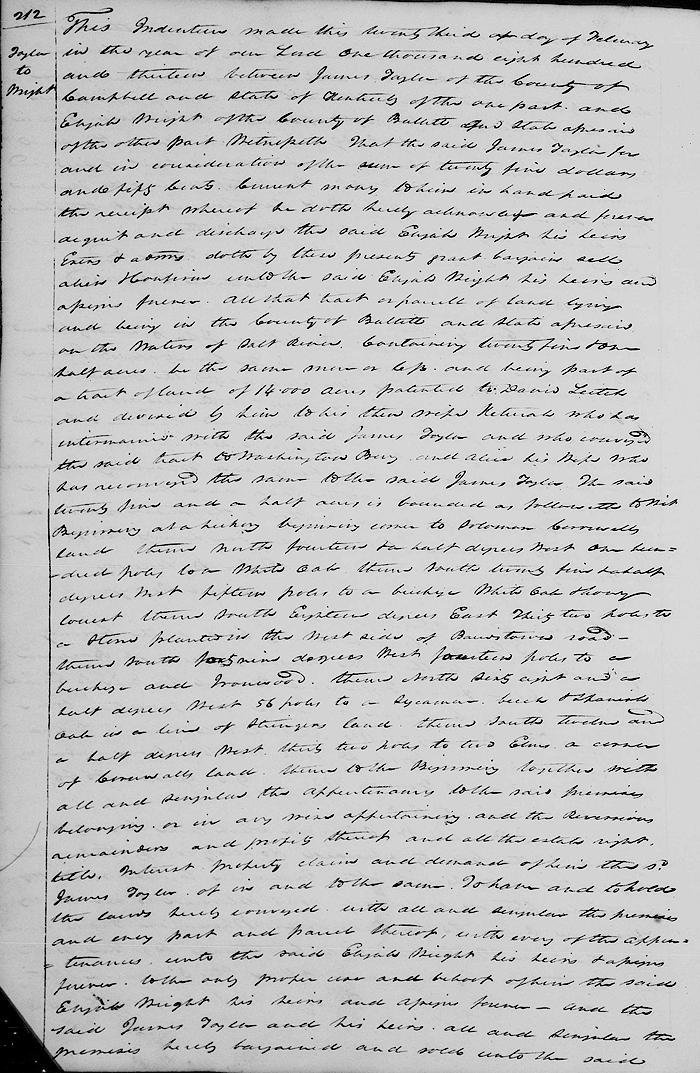 212
Taylor
to
Wright
This Indenture made this twenty third day of February
in the year of our Lord one thousand eight hundred
and thirteen between James Taylor of the County of
Campbell and State of Kentucky of the one part. and
Elijah Wright of the County of Bullitt and State aforesaid
of the other part Witnesseth That the said James Taylor for
and in consideration of the sum of twenty five dollars
and fifty Cents. Current money to him in hand paid
the receipt whereof he doth hereby acknowledge and forever
acquit and discharge the said Elijah Wright his heirs
Exers & adms. doth by these presents grant bargain sell
alien & confirm unto the said Elijah Wright his heirs and
assigns forever. All that tract or parcell of land lying
and being in the County of Bullitt and State aforesaid
on the Waters of Salt River. Containing twenty five & one
half acres. be the same more or less. and being part of
a tract of land of 14000 acres patented to David Leitch
and devised by him to his then wife Keturah who has
intermarried with the said James Taylor and who conveyed
the said tract to Washington Berry and Alice his Wife who
has reconveyed the same to the said James Taylor The said
twenty five and a half acres is bounded as followeth to Wit
Beginning at a hickory beginning corner to Solomon Cornwells
land thence North fourteen & a half degrees West One hun=
=dred poles to a White Oak thence South twenty five & a half
degrees West fifteen poles to a beech White Oak &
thence South Eighteen degrees East Thirty two poles to
a Stone planted in the West side of road -
thence South nine degrees West fourteen poles to a
beech and Ironwood. thence North Sixty eight and a
half degrees West 56 poles to a Sycamore. beech & Spanish
Oak in a line of Stringers land. thence South twelve and
a half degrees West. thirty two poles to two Elms. a corner
of Cornwalls land. thence to the Beginning together with
all and Singular the appurtenances to the said premises
belonging. or in any wise appertaining. and the Reversions
remainders and profits thereof and all the estate right.
title. Interest property claim and demand of him the sd.
James Taylor. of in and to the same. To have and to hold
the lands hereby conveyed. with all and Singular the premises
and every part and parcel thereof. with every of the appur=
=tenances. unto the said Elijah Wright his heirs & assigns
forever. to the only proper use and behoof of him the said
Elijah Wright his heirs and assigns forever - and the
said James Taylor and his heirs. all and Singular the
premises hereby bargained and sold unto the said